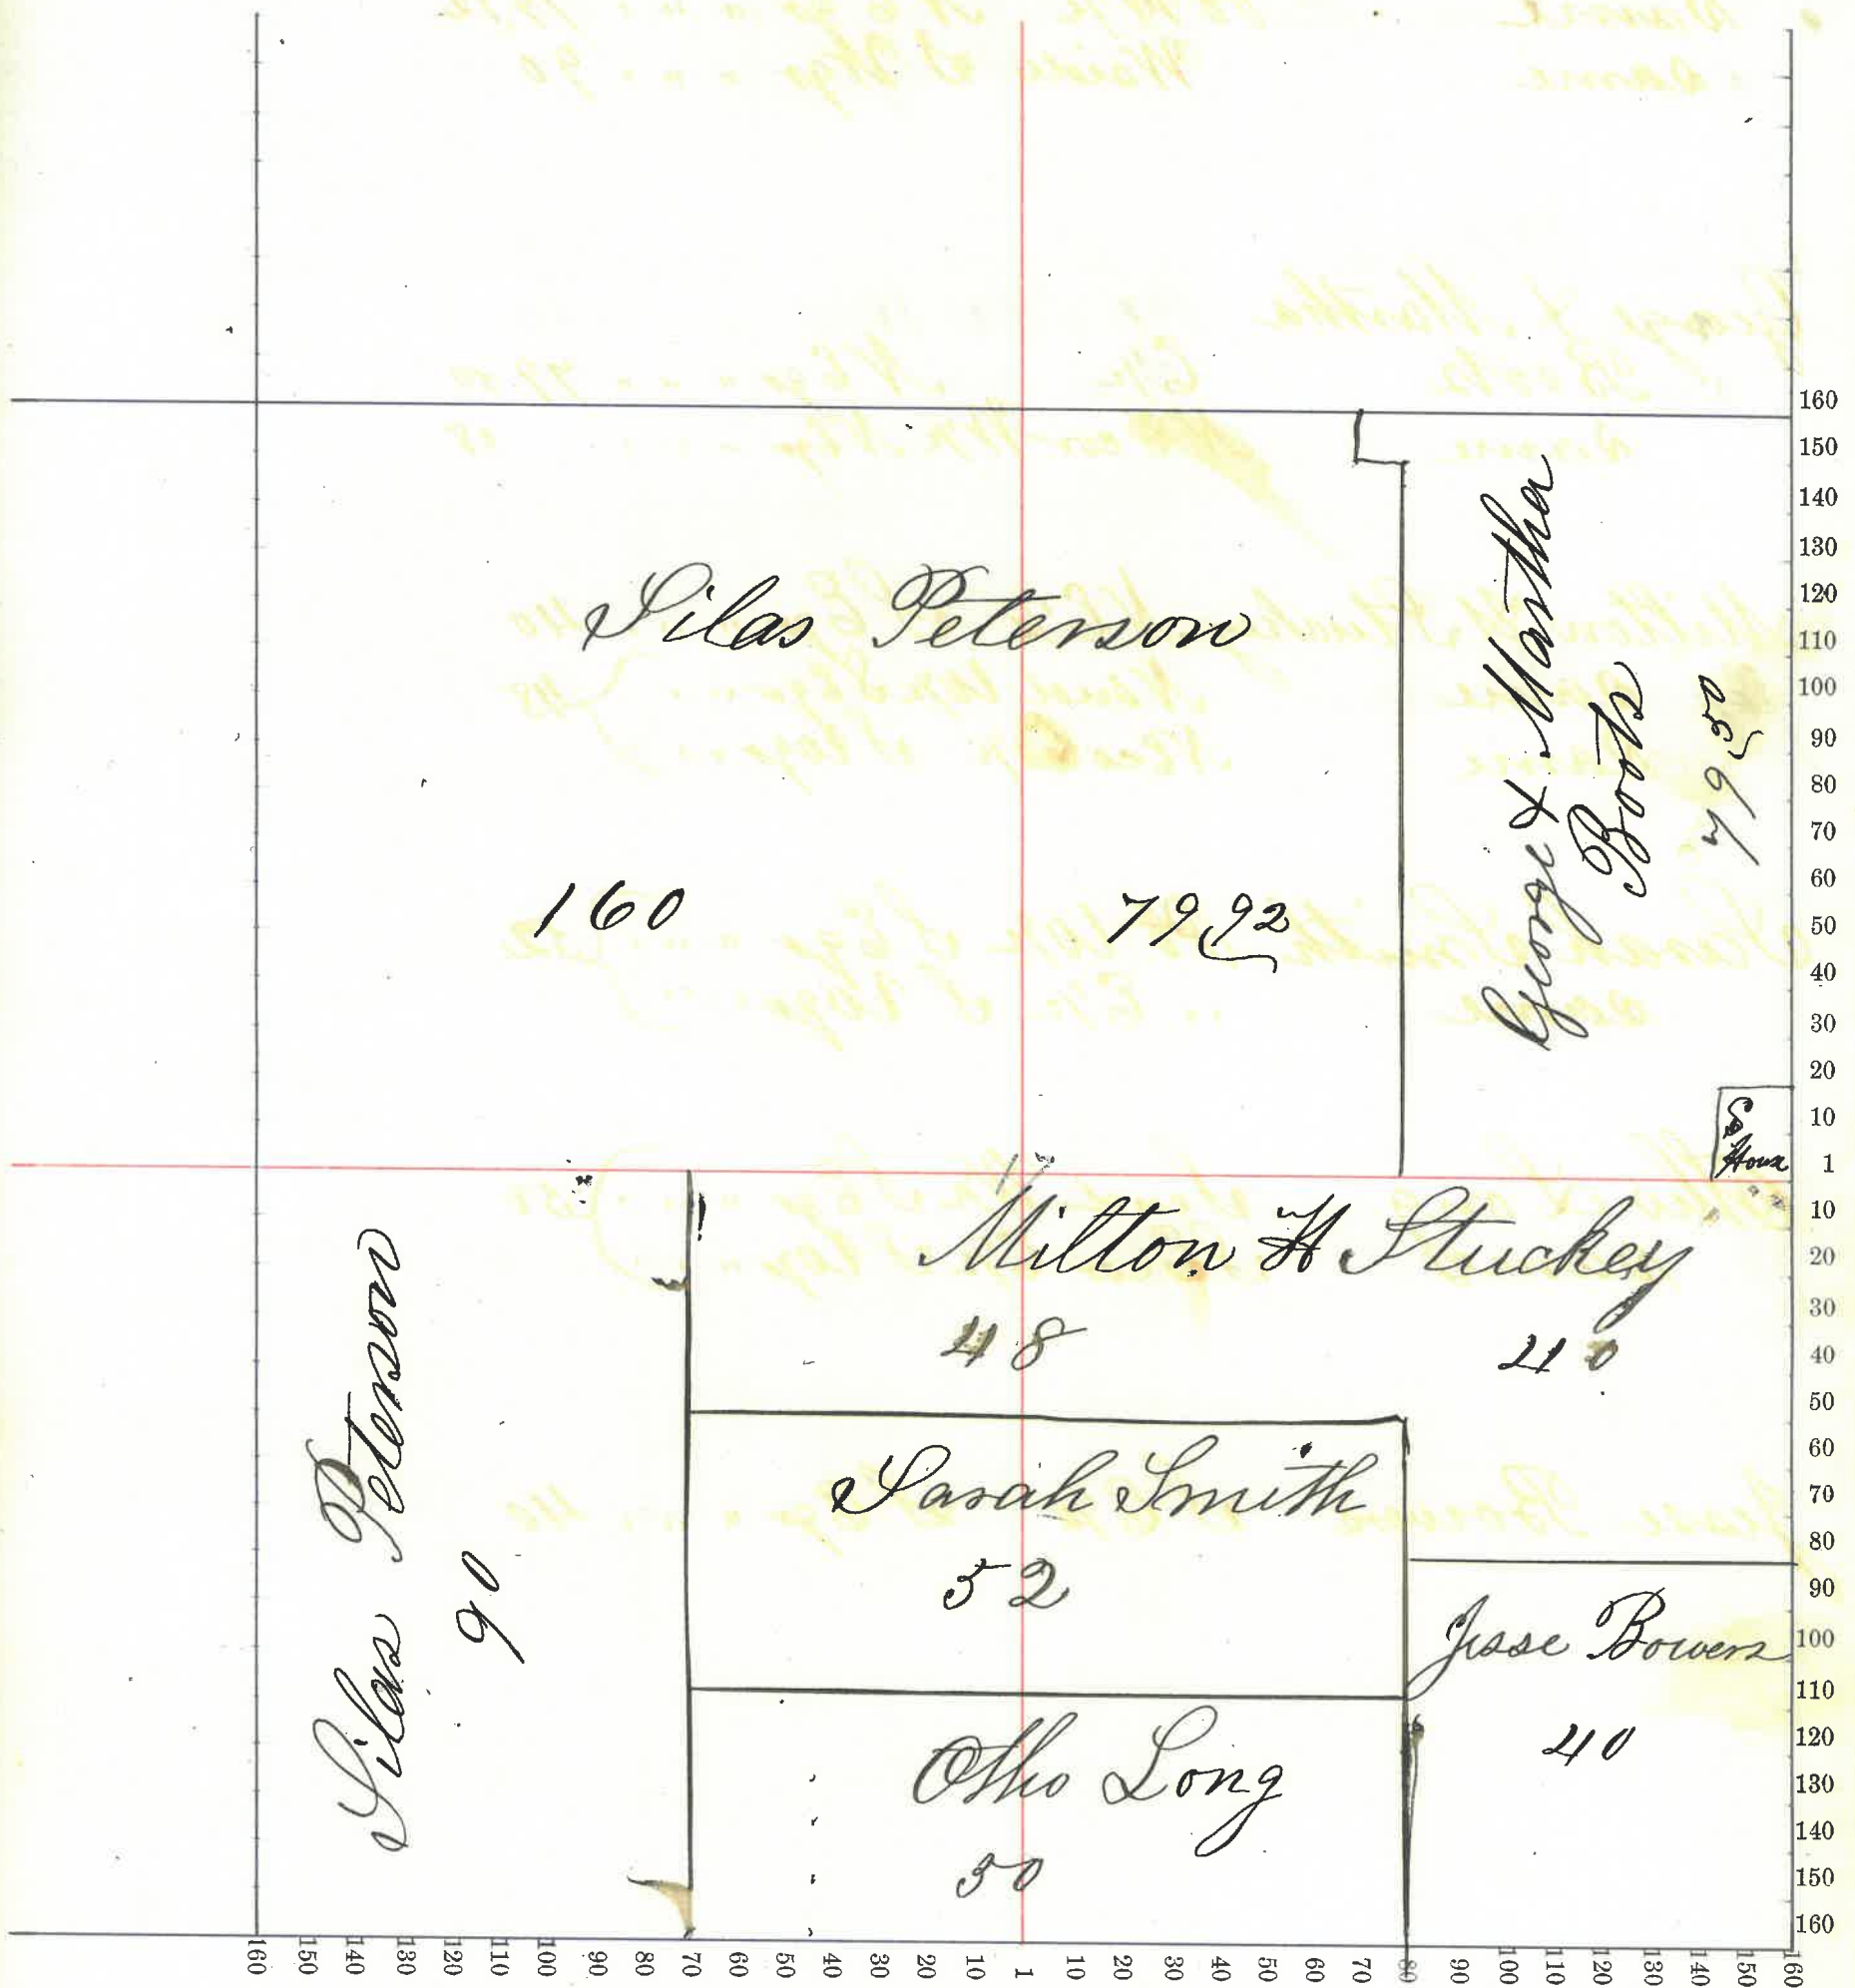 Silas Peterson
160
79 92
George & Martha
Boots
79 50
House
17
Milton H Stuckey
48
40
Silas Peterson
90
Sarah Smith
52
Jesse Bowers
40
Otho Long
50
160
150
140
130
120
110
100
90
80
70
60
50
40
30
20
10
1
10
20
30
40
50
60
70
80
90
100
110
120
130
140
150
160
160 150 140 130 120 110 100 90 80 70 60 50 40 30 20 10 1 10 20 30 40 50 60 70 80 90 100 110 120 130 140 150 160